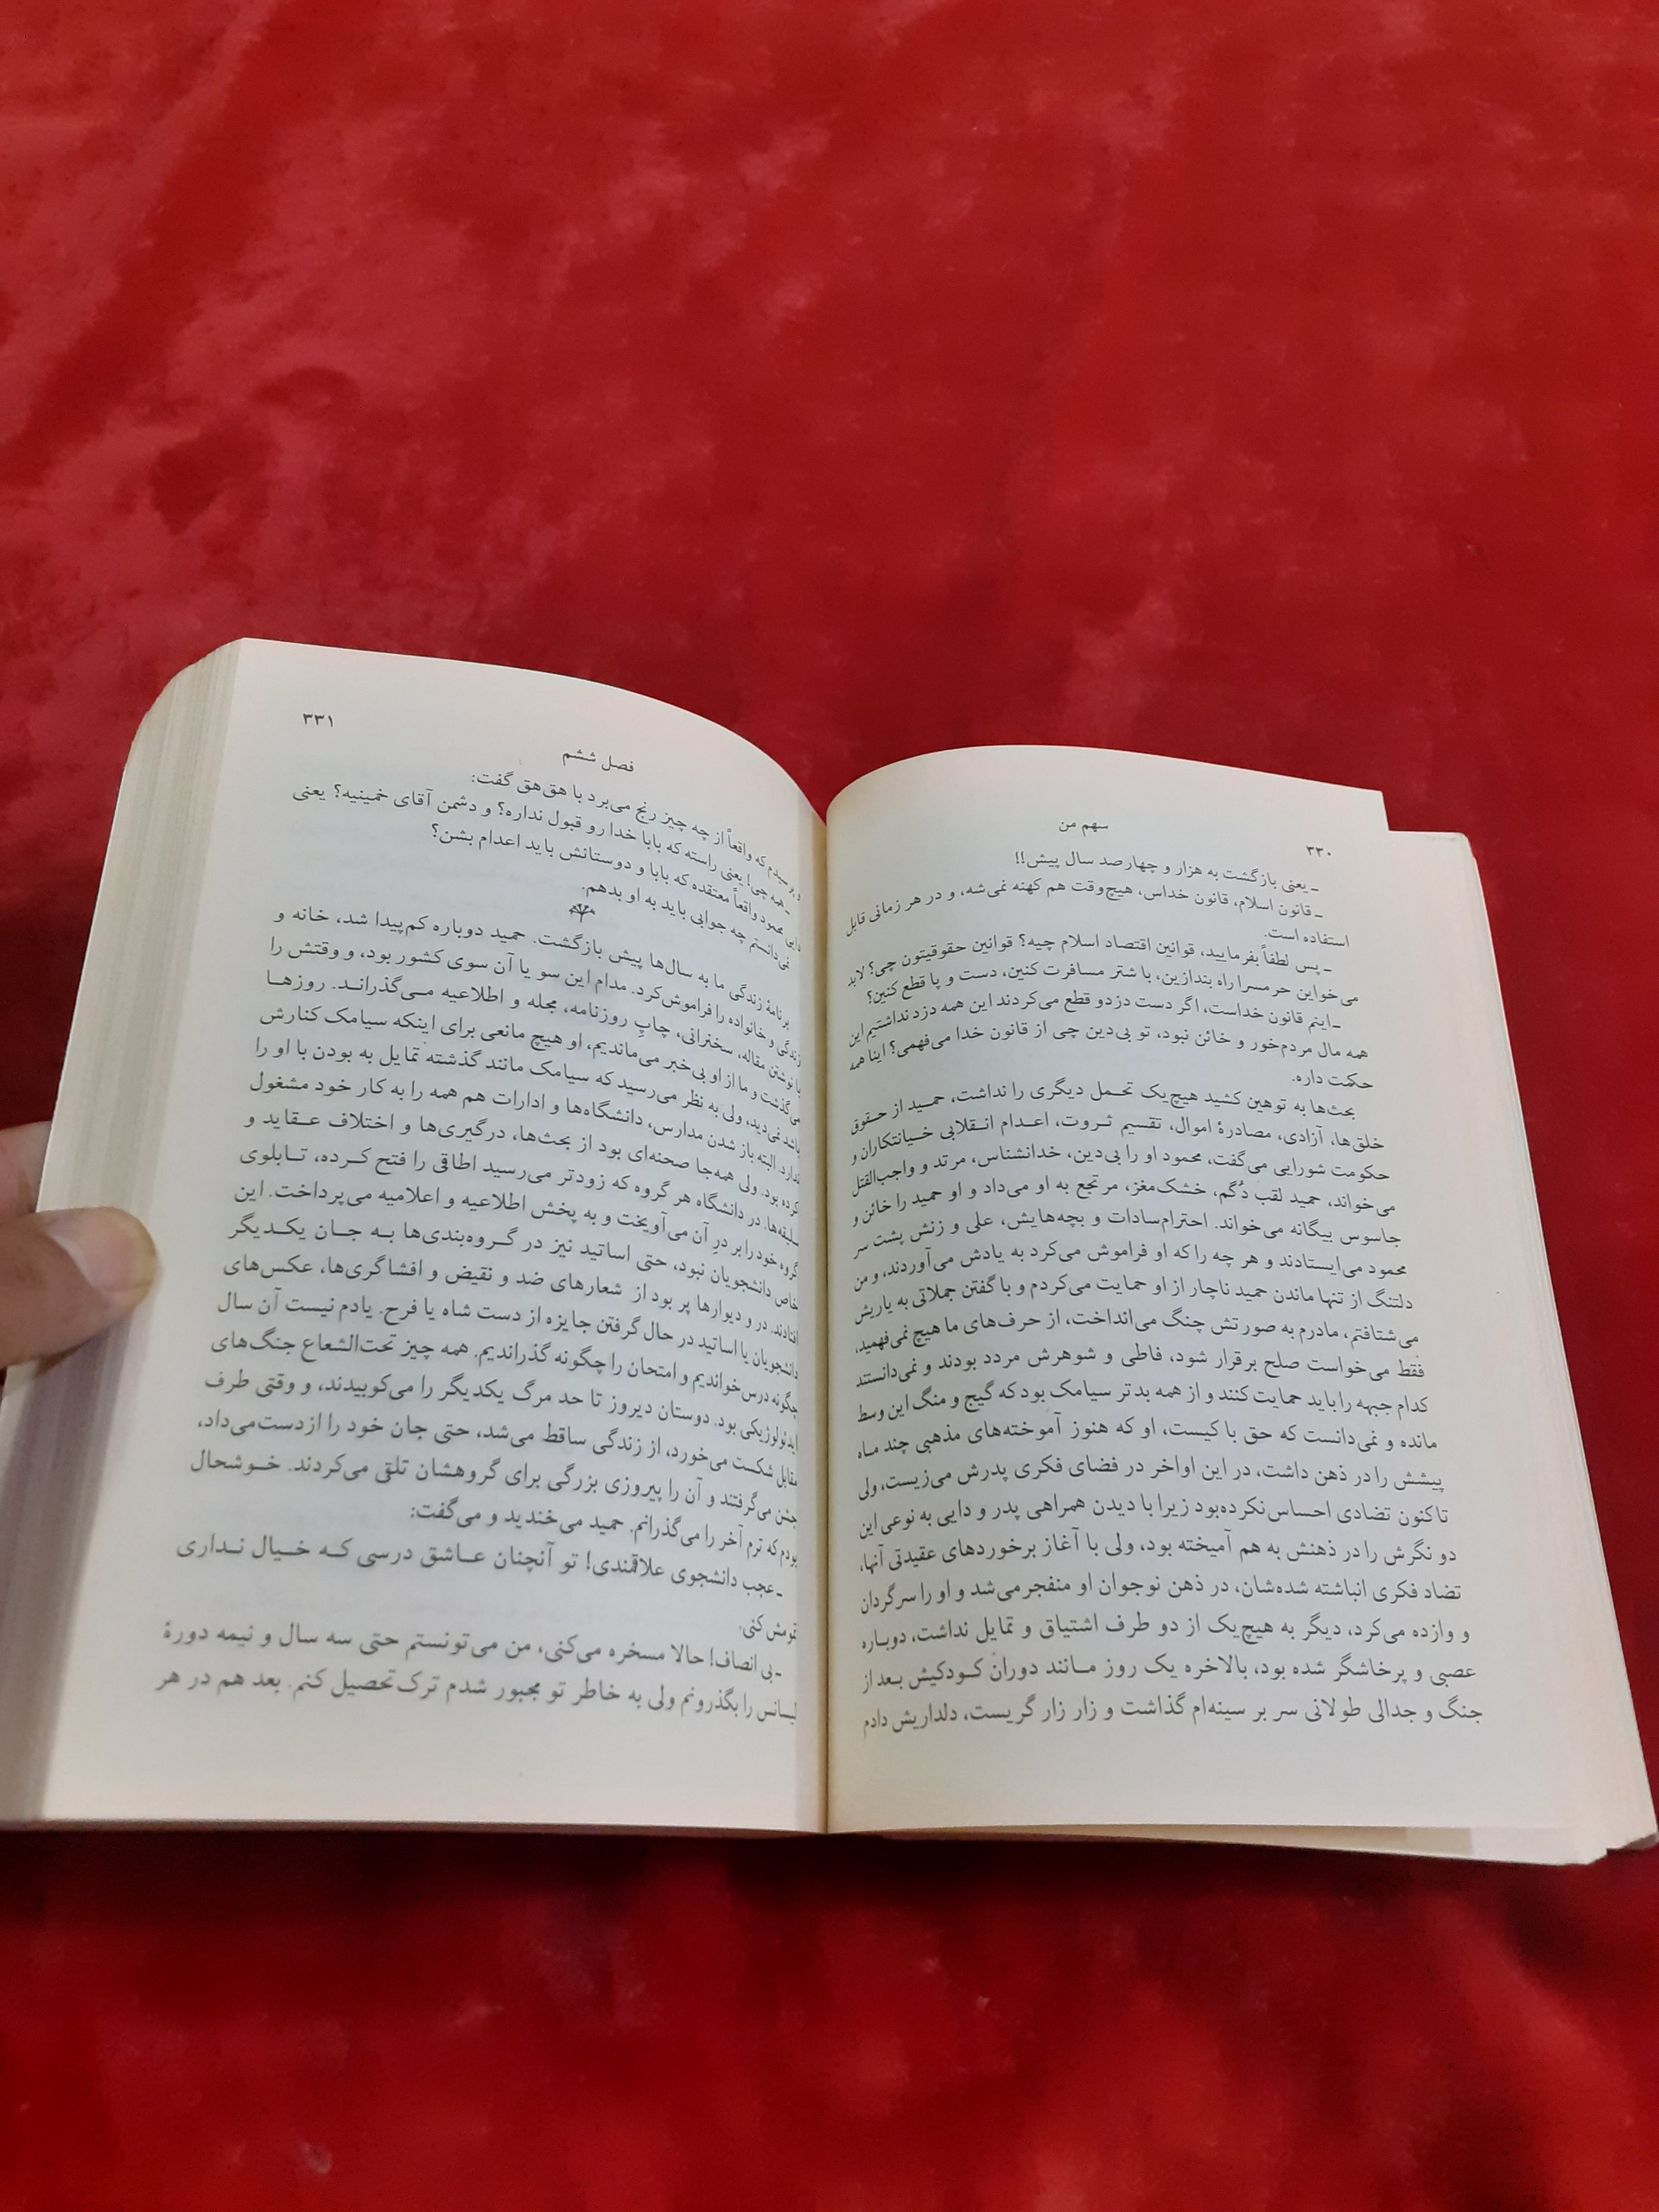 ۳۳۰
سهم من
ـ یعنی بازگشت به هزار و چهارصد سال پیش!!
ـ قانون اسلام، قانون خداس، هیچ‌وقت هم کهنه نمی‌شه، و در هر زمانی قابل
استفاده است.
ـ پس لطفاً بفرمایید، قوانین اقتصاد اسلام چیه؟ قوانین حقوقیتون چی؟ لابد
می‌خواین حرمسرا راه بندازین، با شتر مسافرت کنین، دست و پا قطع کنین؟
ـ اینم قانون خداست، اگر دست دزدو قطع می‌کردند این همه دزد نداشتیم این
همه مال مردم‌خور و خائن نبود، تو بی‌دین چی از قانون خدا می‌فهمی؟ اینا همه
حکمت داره.
بحث‌ها به توهین کشید هیچ‌یک تحمل دیگری را نداشت، حمید از حقوق
خلق‌ها، آزادی، مصادرهٔ اموال، تقسیم ثروت، اعدام انقلابی خیانتکاران و
حکومت شورایی می‌گفت، محمود او را بی‌دین، خدانشناس، مرتد و واجب‌القتل
می‌خواند، حمید لقب دُگم، خشک‌مغز، مرتجع به او می‌داد و او حمید را خائن و
جاسوس بیگانه می‌خواند. احترام‌سادات و بچه‌هایش، علی و زنش پشت سر
محمود می‌ایستادند و هر چه را که او فراموش می‌کرد به یادش می‌آوردند، و من
دلتنگ از تنها ماندن حمید ناچار از او حمایت می‌کردم و با گفتن جملاتی به یاریش
می‌شتافتم، مادرم به صورتش چنگ می‌انداخت، از حرف‌های ما هیچ نمی‌فهمید،
فقط می‌خواست صلح برقرار شود، فاطی و شوهرش مردد بودند و نمی‌دانستند
کدام جبهه را باید حمایت کنند و از همه بدتر سیامک بود که گیج و منگ این وسط
مانده و نمی‌دانست که حق با کیست، او که هنوز آموخته‌های مذهبی چند ماه
پیشش را در ذهن داشت، در این اواخر در فضای فکری پدرش می‌زیست، ولی
تاکنون تضادی احساس نکرده‌بود زیرا با دیدن همراهی پدر و دایی به نوعی این
دو نگرش را در ذهنش به هم آمیخته بود، ولی با آغاز برخوردهای عقیدتی آنها،
تضاد فکری انباشته شده‌شان، در ذهن نوجوان او منفجر می‌شد و او را سرگردان
و وازده می‌کرد، دیگر به هیچ‌یک از دو طرف اشتیاق و تمایل نداشت، دوباره
عصبی و پرخاشگر شده بود، بالاخره یک روز مانند دوران کودکیش بعد از
جنگ و جدالی طولانی سر بر سینه‌ام گذاشت و زار زار گریست، دلداریش دادم
۳۳۱
فصل ششم
و پرسیدم که واقعاً از چه چیز رنج می‌برد با هق‌هق گفت:
ـ همه چی! یعنی راسته که بابا خدا رو قبول نداره؟ و دشمن آقای خمینیه؟ یعنی
دایی محمود واقعاً معتقده که بابا و دوستانش باید اعدام بشن؟
نمی‌دانستم چه جوابی باید به او بدهم.
برنامهٔ زندگی ما به سال‌ها پیش بازگشت. حمید دوباره کم‌پیدا شد، خانه و
زندگی و خانواده را فراموش کرد. مدام این سو یا آن سوی کشور بود، و وقتش را
با نوشتن مقاله، سخنرانی، چاپ روزنامه، مجله و اطلاعیه می‌گذراند. روزها
می‌گذشت و ما از او بی‌خبر می‌ماندیم، او هیچ مانعی برای اینکه سیامک کنارش
باشد نمی‌دید، ولی به نظر می‌رسید که سیامک مانند گذشته تمایل به بودن با او را
ندارد. البته باز شدن مدارس، دانشگاه‌ها و ادارات هم همه را به کار خود مشغول
کرده بود. ولی همه‌جا صحنه‌ای بود از بحث‌ها، درگیری‌ها و اختلاف عقاید و
سلیقه‌ها. در دانشگاه هر گروه که زودتر می‌رسید اطاقی را فتح کرده، تابلوی
گروه خود را بر درِ آن می‌آویخت و به پخش اطلاعیه و اعلامیه می‌پرداخت. این
خاص دانشجویان نبود، حتی اساتید نیز در گروه‌بندی‌ها به جان یکدیگر
افتادند. در و دیوارها پر بود از شعارهای ضد و نقیض و افشاگری‌ها، عکس‌های
دانشجویان یا اساتید در حال گرفتن جایزه از دست شاه یا فرح. یادم نیست آن سال
چگونه درس خواندیم و امتحان را چگونه گذراندیم. همه چیز تحت‌الشعاع جنگ‌های
ایدئولوژیکی بود. دوستان دیروز تا حد مرگ یکدیگر را می‌کوبیدند، و وقتی طرف
مقابل شکست می‌خورد، از زندگی ساقط می‌شد، حتی جان خود را از دست می‌داد،
جشن می‌گرفتند و آن را پیروزی بزرگی برای گروهشان تلقی می‌کردند. خوشحال
بودم که ترم آخر را می‌گذرانم. حمید می‌خندید و می‌گفت:
ـ عجب دانشجوی علاقمندی! تو آنچنان عاشق درسی که خیال نداری
تمومش کنی.
ـ بی انصاف! حالا مسخره می‌کنی، من می‌تونستم حتی سه سال و نیمه دورهٔ
لیسانس را بگذرونم ولی به خاطر تو مجبور شدم ترک تحصیل کنم. بعد هم در هر